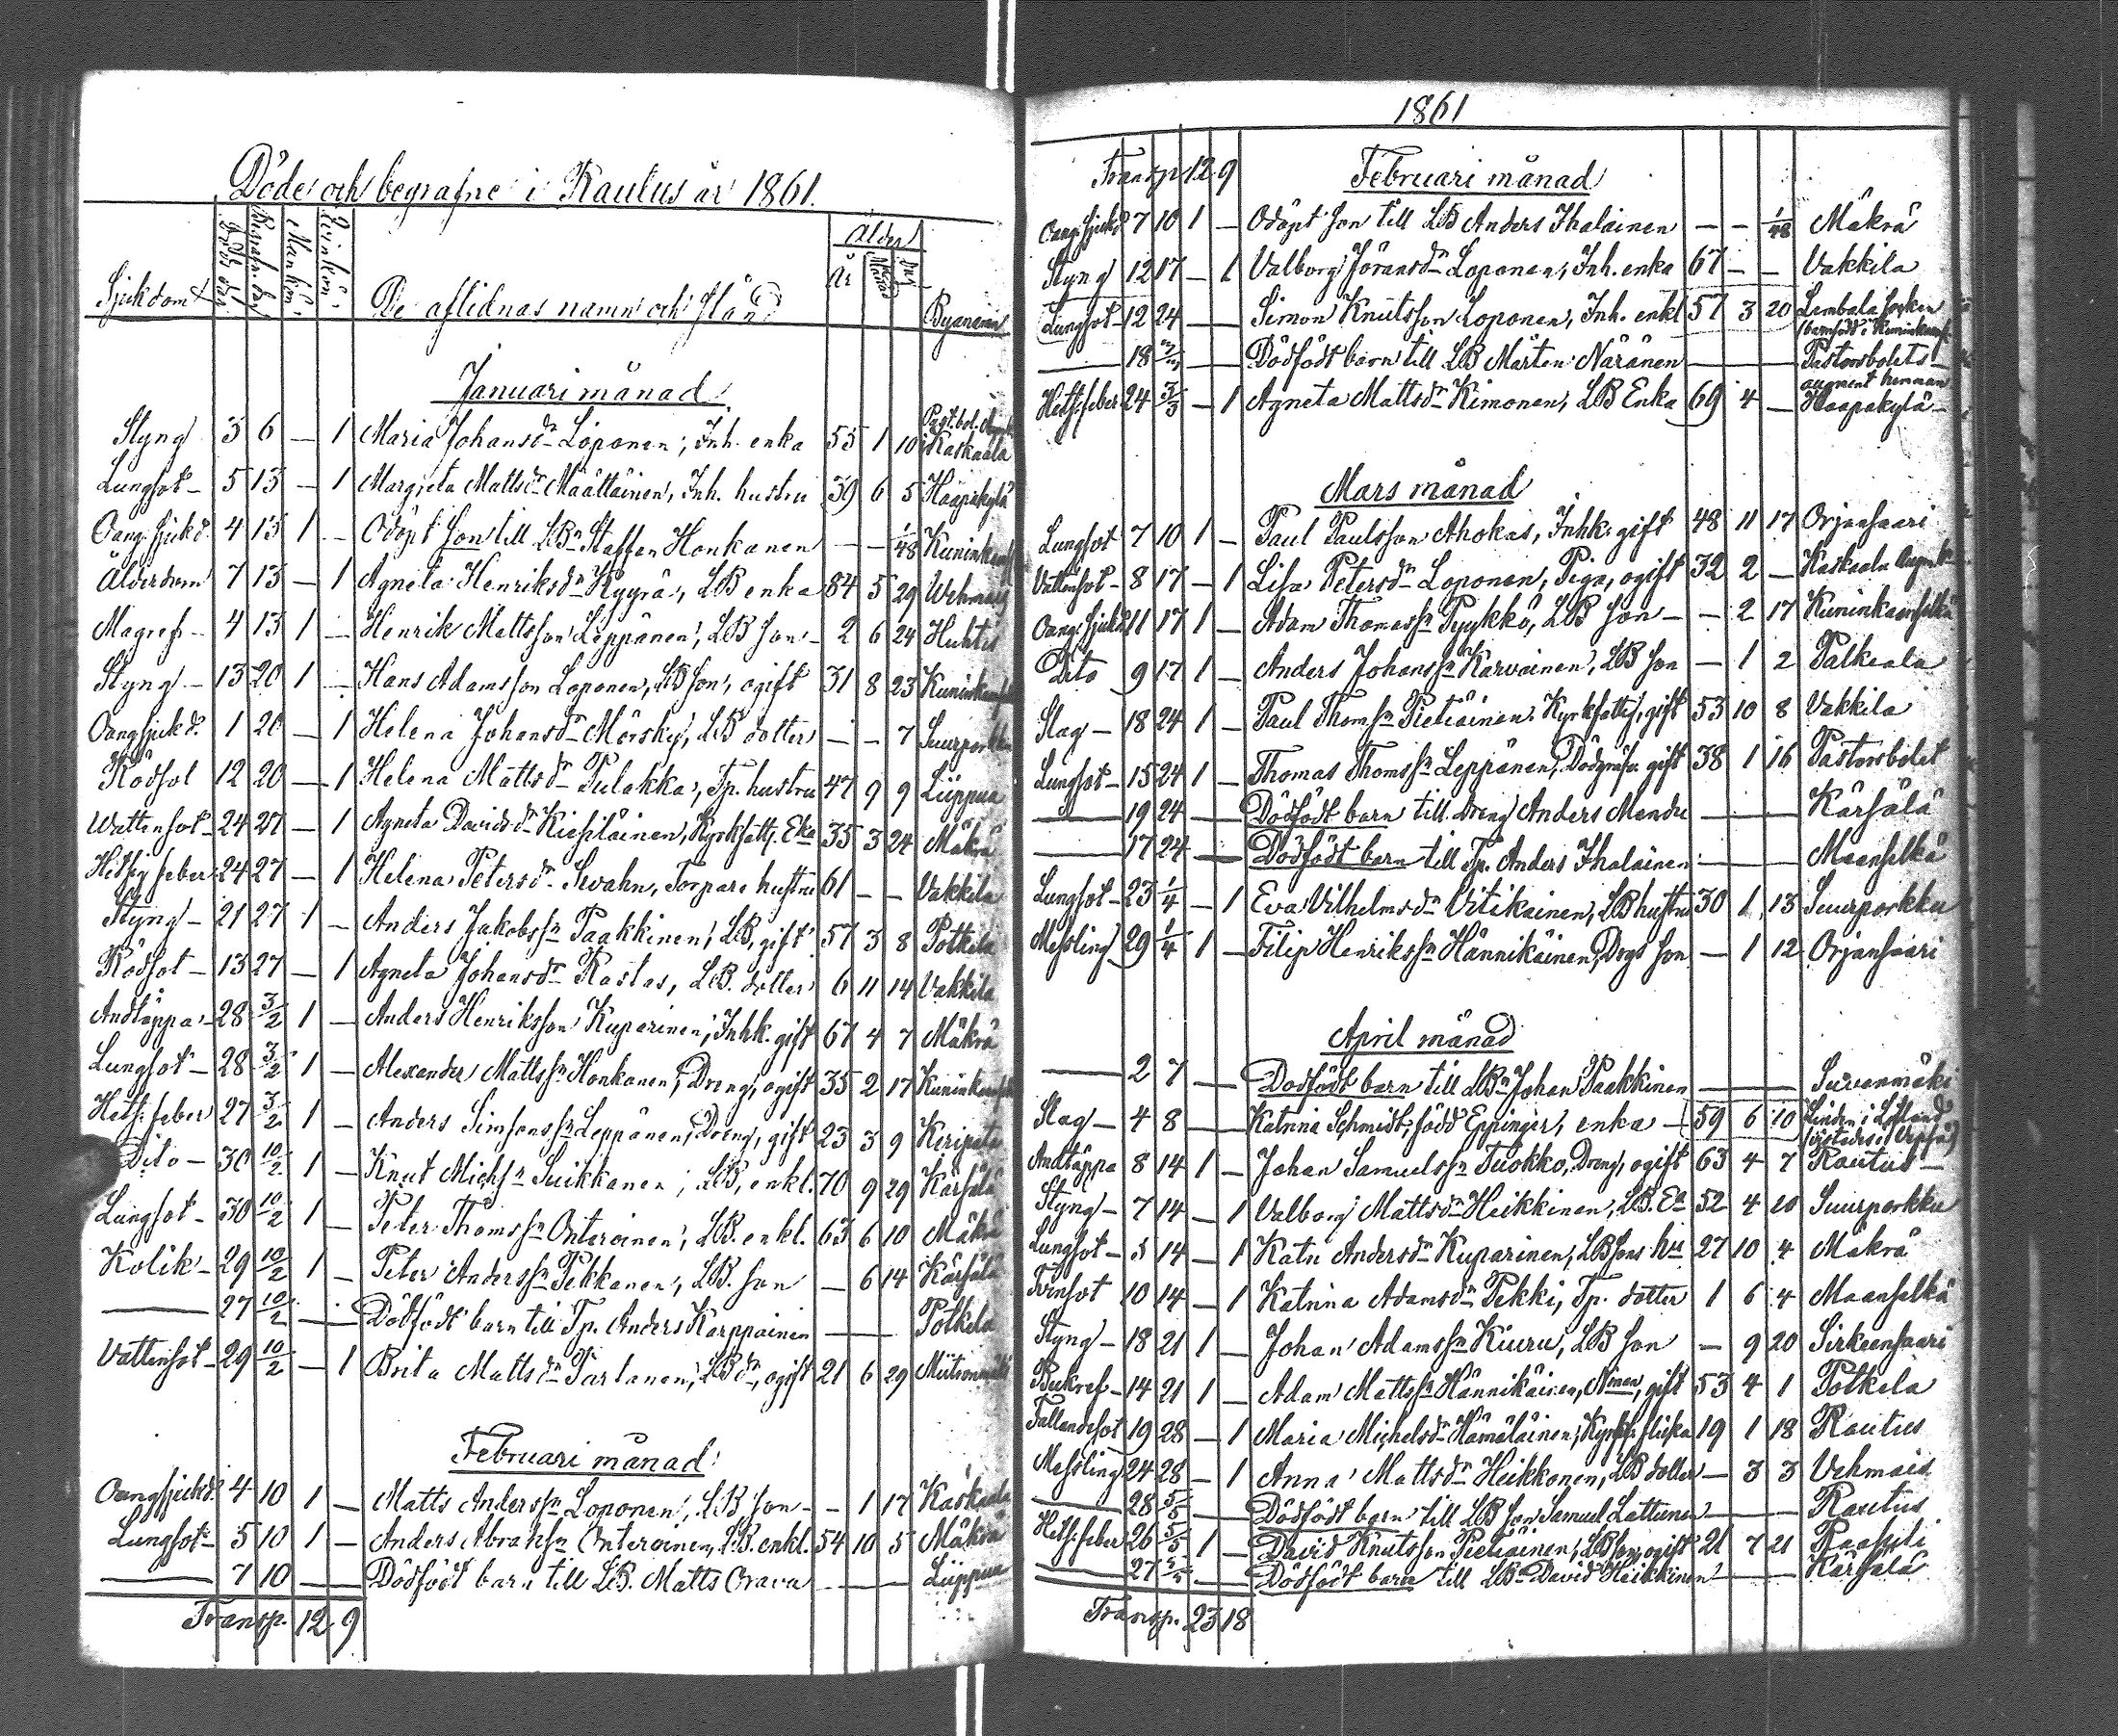 Döde och begrafne i Rautus år 1861.
Sjukdom Död den Begrafn. dag Mankön Qvinkön De aflidnas namn och stånd Ålder År Månad Dag Byanamn
Januari månad
Styng 3 6 — 1 Maria Johansdr Loponen, Inh. enka 55 1 10 Past. bol. i Raskaala
Lungsot 5 13 — 1 Margreta Mattsdr Määttäinen, Inh. hustru 39 6 5 Haapakylä
Oang. sjukd. 4 13 1 — Odöpt son till LBn Staffan Honkanen — — 1/48 Kuninkans
Ålderdom 7 13 — 1 Agneta Henriksdr Kyyrä, LB enka 84 5 29 Wehmais
Magref 4 13 1 — Henrik Mattsson Leppänen, LB son 2 6 24 Huhtis
Styng 13 20 1 — Hans Adamsson Loponen, LB son, ogift 31 8 23 Kuninkans
Oang sjukd. 1 20 — 1 Helena Johansdr Mörsky, LB dotter — — 7 Suurporkku
Rödsot 12 20 — 1 Helena Mattsdr Pulakka, Tp. hustru 47 9 9 Liippua
Wattensot 24 27 — 1 Agneta Davidsdr Kiesiläinen, Kyrkfatt. Eka 35 3 24 Mäkrä
Hetsig feber 24 27 — 1 Helena Petersdr Sevahn, Torpare hustru 61 — — Vakkila
Styng 21 27 1 — Anders Jakobssn Paakkinen, LB, gift 57 3 8 Potkela
Rödsot 13 27 — 1 Agneta Johansdr Rastas, LB. dotter 6 11 14 Vakkila
Andtäppa 28 3/2 1 — Anders Henriksson Kuparinen, Inhk. gift 67 4 7 Mäkrä
Lungsot 28 3/2 1 — Alexander Mattssn Honkanen, Dreng, ogift 35 2 17 Kuninkans
Hets. feber 27 3/2 1 — Anders Simonssn Leppänen, Dreng, gift 23 3 9 Keripata
Dito 30 10/2 1 — Knut Michsn Suikkanen, LB, enkl. 70 9 29 Kärsälä
Lungsot 30 10/2 1 — Peter Thomssn Onteroinen, LB. enkl. 63 6 10 Mäkrä
Kolik 29 10/2 1 — Peter Anderssn Pekkanen, LB. son — 6 14 Kärsälä
— 27 10/2 — Dödfödt barn till Tp. Anders Karppainen — Potkela
Vattensot 29 10/2 — 1 Brita Mattsdr Partanen, LB dr, ogift 21 6 29
Februari månad
Oang sjukd. 4 10 1 — Matts Anderssn Loponen, LB. son — 1 17 Raskaala
Lungsot 5 10 1 — Anders Abrahsn Onteroinen, LB. enkl. 54 10 5 Mäkrä
— 7 10 — Dödfödt barn till LB. Matts Orava — Liippua
Transp. 12 9
1861
Transp. 12 9 Februari månad
Oang. sjukd 7 10 1 — Odöpt son till LB Anders Ihalainen — — 1/48 Mäkrä
Styng 12 17 — 1 Valborg Jöransdr Loponen, Inh. enka 67 — — Vakkila
Lungsot 12 24 — Simon Knutsson Loponen, Inh. enkl 57 3 20 Lembala socken
— 18 — Dödfödt barn till LB Mårten Näränen — Pastorsbolets
augment hemman
Hets. feber 24 3/3 — 1 Agneta Mattsdr Kimonen, LB Enka 69 4 — Haapakylä
Mars månad
Lungsot 7 10 1 — Paul Paulsson Ahokas, Inhk. gift 48 11 17 Orjansaari
Vattensot 8 17 — 1 Lisa Petersdr Loponen, Piga, ogift 32 2 — Raskaala
Oang. sjukd 11 17 1 — Adam Thomassn Pyykkö, LB son — 2 17 Kuninkaanselkä
Dito 9 17 1 — Anders Johanssn Karvainen, LB son — 1 2 Palkeala
Slag 18 24 1 — Paul Thomsn Pietiäinen, Kyrkfattig, gift 53 10 8 Vakkila
Lungsot 15 24 1 — Thomas Thomssn Leppänen, Dödgräfr. gift 38 1 16 Pastorsbolet
— 19 24 — Dödfödt barn till Dreng Anders Mandu — Kärsälä
— 17 24 — Dödfödt barn till Tp. Anders Ihalainen — Maanselkä
Lungsot 23 1/4 — 1 Eva Vilhelmsdr Vitikainen, LB hustru 30 1 13 Suurporkku
Messling 29 1/4 1 — Filip Henrikssn Hännikäinen, Drgs son — 1 12 Orjansaari
April månad
— 2 7 — Dödfödt barn till LBn Johan Paakkinen —
Slag 4 8 — Katrina Schmidt, född Eppinger, enka 59 6 10
Andtäppa 8 14 1 — Johan Samuelssn Tuokko, Dreng, ogift 63 4 7 Rautus
Styng 7 14 — 1 Valborg Mattsdr Heikkinen, LB. Ea 52 4 20 Suurporkku
Lungsot 5 14 — 1 Katri Andersdr Kuparinen, LB sons hu 27 10 4 Mäkrä
Tvinsot 10 14 — 1 Katrina Adamsdr Pekki, Tp. dotter 1 6 4 Maanselkä
Styng 18 21 1 — Johan Adamssn Kiuru, LB son — 9 20 Sirkeensaari
Bukref 14 21 1 — Adam Mattssn Hännikäinen, Nman, gift 53 4 1 Potkela
Fallandesot 19 28 — 1 Maria Michelsdr Hämäläinen, Kyrkf. flicka 19 1 18 Rautus
Messling 24 28 — 1 Anna Mattsdr Heikkonen, LB dotter — 3 3 Vehmais
— 28 5/5 — Dödfödt barn till LB son Samuel Lattunen — Rautus
Hets. feber 26 5/5 1 — David Knutsson Pietiäinen, LB son, ogift 21 7 21 Raasuli
— 27 5/5 — Dödfödt barn till LBn David Heikkinen — Kärsälä
Transp. 23 18